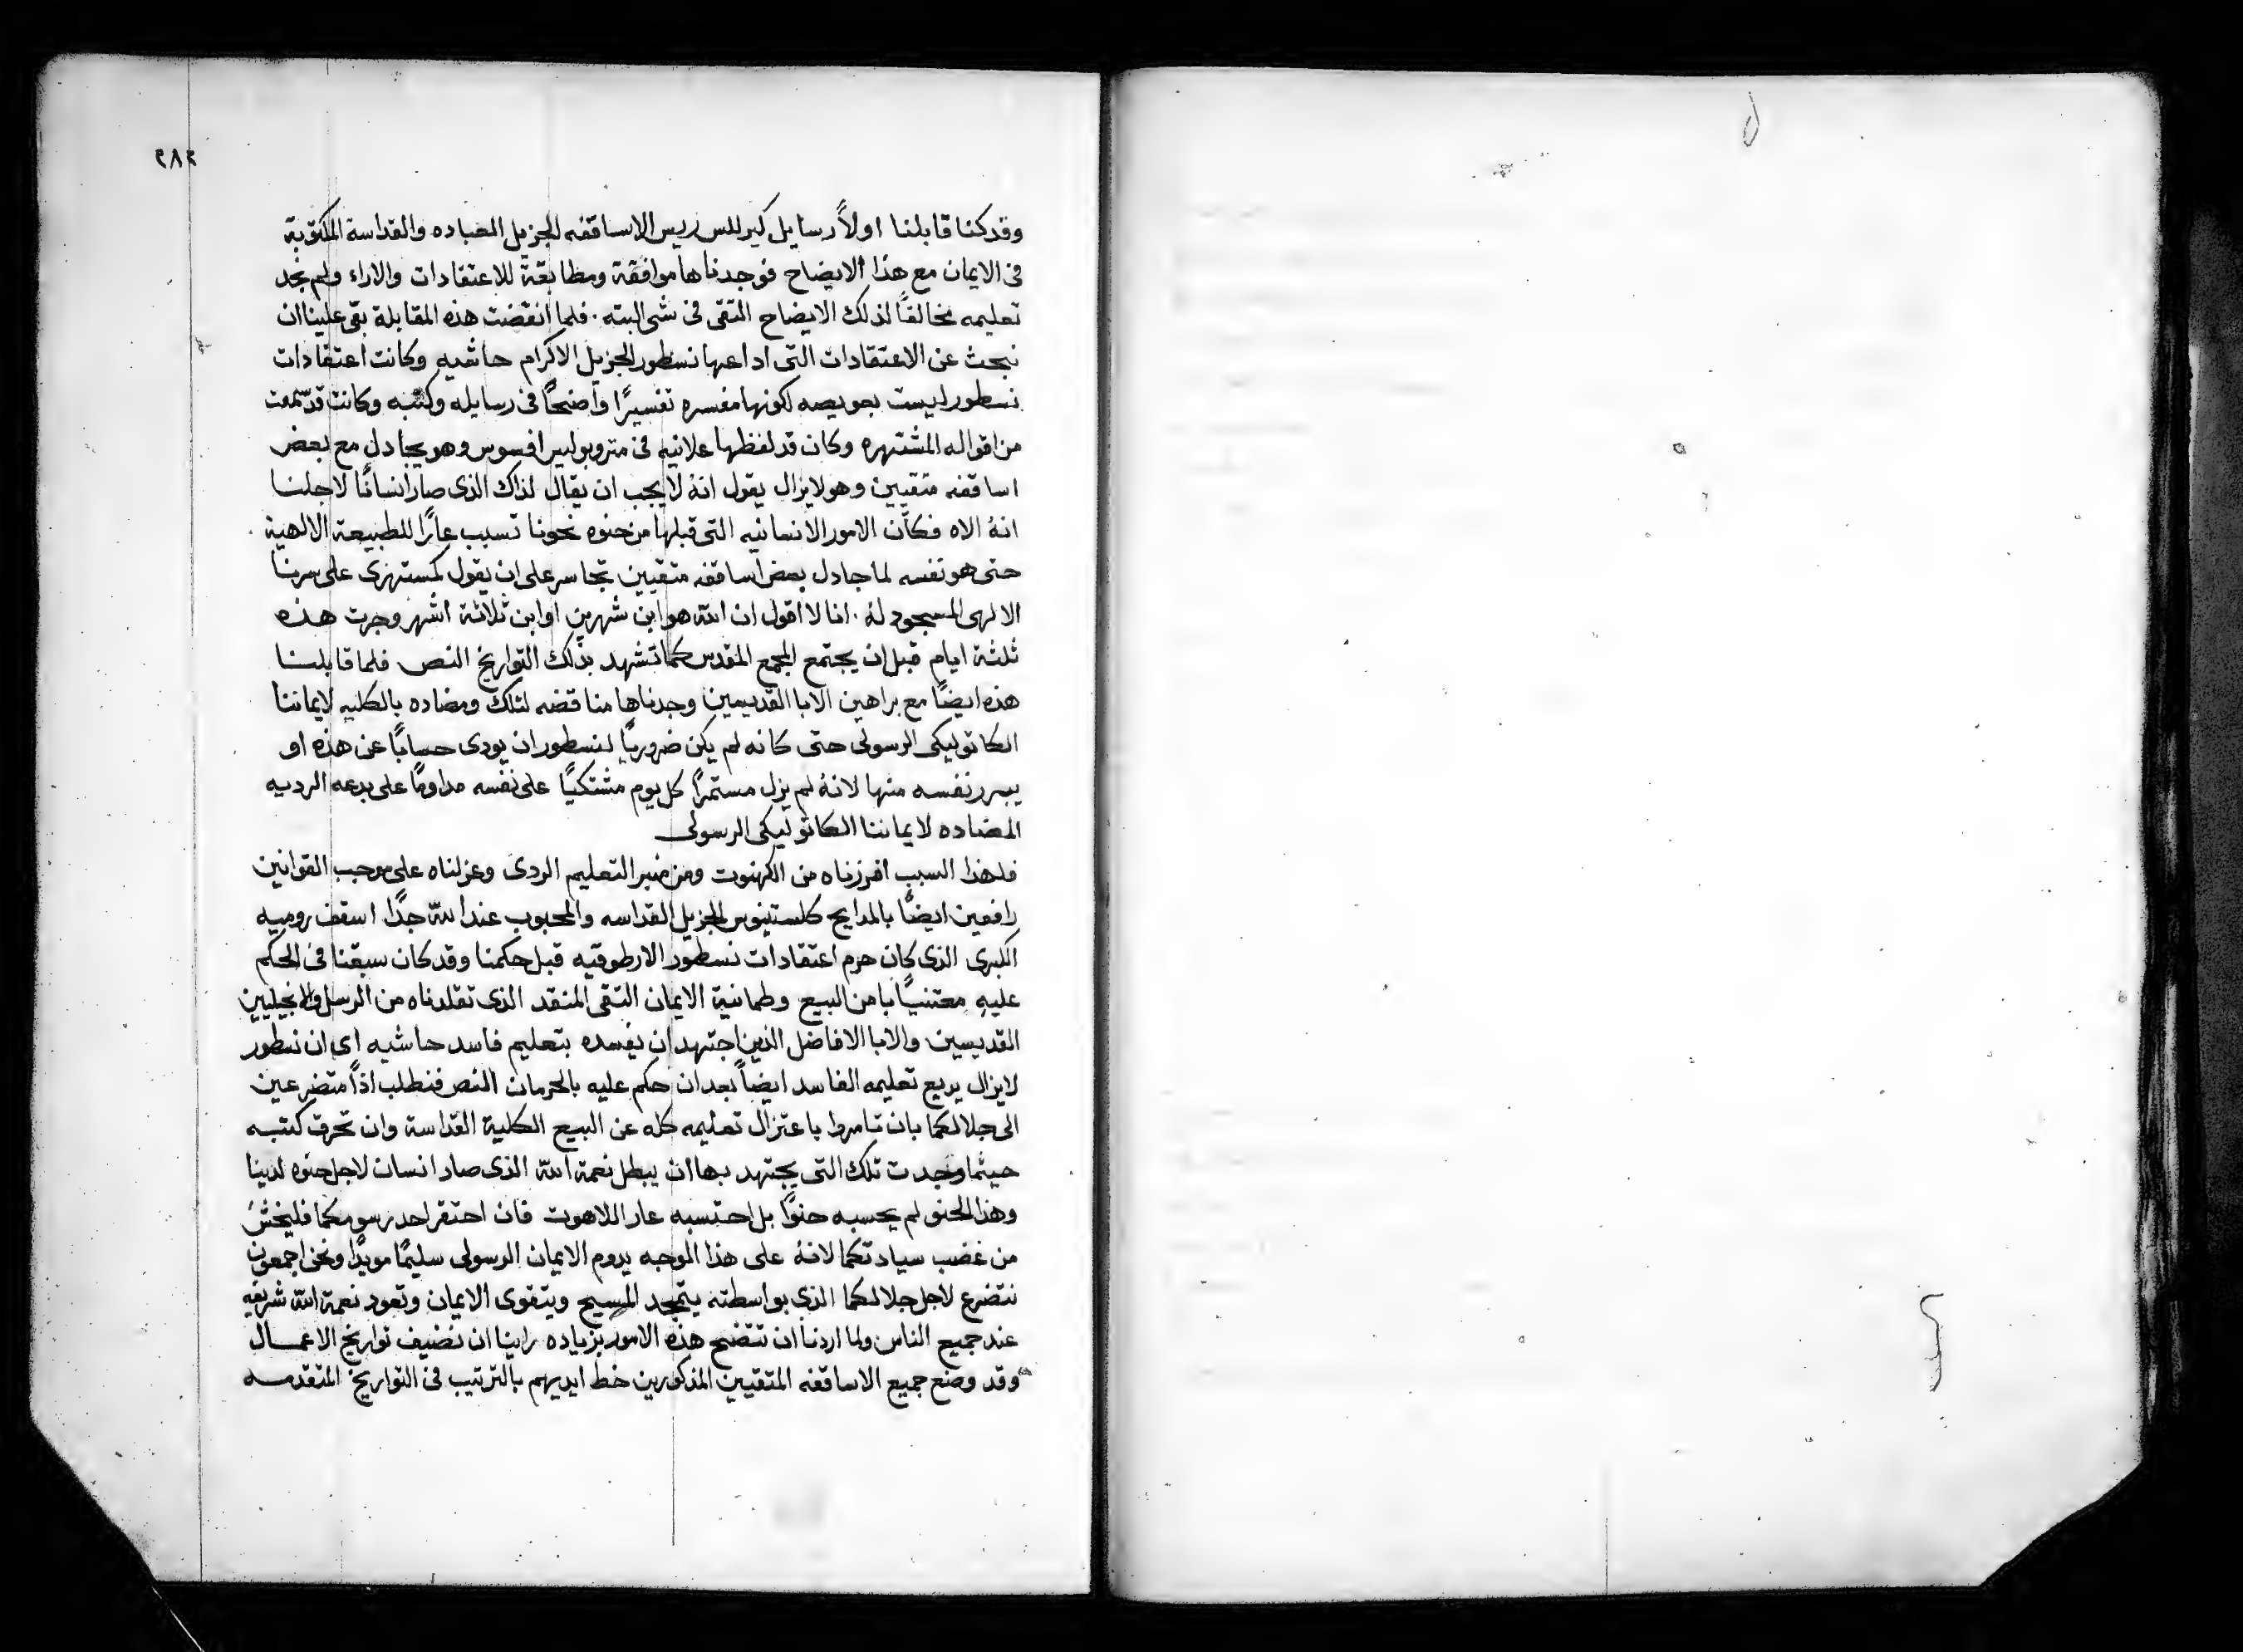 ٢٨٢
وقد كنا قابلنا اولاً رسايل كيرللس ريس الاساقفه الجزيل العباده والقداسة المكتوبة
فى الايمان مع هذا الايضاح فوجدناها موافقة ومطابقة للاعتقادات والاراء ولم نجد
تعليمه مخالفاً لذلك الايضاح التقى فى شى البته. فلما انقضت هذه المقابلة بقى علينا ان
نبحث عن الاعتقادات التى اداعها نسطور الجزيل الاكرام حاشيه وكانت اعتقادات
نسطور ليست بعويصه لكونها مفسره تفسيرًا واضحاً فى رسايله وكتبه وكانت قد سمعت
من اقواله المشتهره وكان قد لفظها علانيه فى متروبوليس افسوس وهو يجادل مع بعض
اساقفه متقيين وهو لايزال يقول انهُ لا يجب ان يقال لذاك الذى صار انسانًا لاجلنا
انهُ الاه فكأن الامور الانسانيه التى قبلها من حنوه نحونا تسبب عارًا للطبيعة الالهية.
حتى هو نفسه لما جادل بعض اساقفه متقيين تجاسر على ان يقول كمستهزى على سرنا
الالهى المسجود لهُ. انا لا اقول ان الله هو ابن شهرين او ابن ثلاثة اشهر وجرت هذه
ثلثة ايام قبل ان يجتمع المجمع المقدس كما تشهد بذلك التواريخ النص فلما قابلنا
هذه ايضًا مع براهين الابا القديسين وجدناها مناقضه لتلك ومضاده بالكليه لايماننا
الكاتوليكى الرسولى حتى كانه لم يكن ضروريًا لنسطور ان يودى حسابًا عن هذه او
يبرر نفسه منها لانهُ لم يزل مستمرًا كل يوم مشتكيًا على نفسه مداومًا على بدعه الرديه
المضاده لايماننا الكاتوليكى الرسولى
فلهذا السبب افرزناه من الكهنوت ومن منبر التعليم الردى وعزلناه على موجب القوانين
رافعين ايضًا بالمدايح كلستينوس الجزيل القداسه والمحبوب عند الله جدًا اسقف روميه
الكبرى الذى كان حرم اعتقادات نسطور الارطوقيه قبل حكمنا وقد كان سبقنا فى الحكم
عليه معتنيًا بامن البيع وطمانية الايمان التقى المنقد الذى تقلدناه من الرسل والانجيليين
القديسين والابا الافاضل الذين اجتهد ان يفسده بتعليم فاسد حاشيه اى ان نسطور
لايزال يريع تعليمه الفاسد ايضاً بعد ان حكم عليه بالحرمان النص فنطلب اذاً متضرعين
الى جلالكما بان تامروا باعتزال تعليمه كله عن البيع الكلية القداسة وان تحرق كتبه
حيثما وجدت تلك التى يجتهد بها ان يبطل نعمة الله الذى صار انسان لاجل حنوه لدينا
وهذا الحنو لم يحسبه حنوًا بل احتسبه عار اللاهوت فان احتقر احد رسومكما فليخشَ
من غضب سيادتكما لانهُ على هذا الوجه يدوم الايمان الرسولى سليمًا مويدًا ونحن اجمعون
نتضرع لاجل جلالكما الذى بواسطته يتمجد المسيح ويتقوى الايمان وتعود نعمة الله شريفه
عند جميع الناس ولما اردنا ان تتضح هذه الامور بزياده راينا ان نضيف تواريخ الاعمال
وقد وضع جميع الاساقفه المتقيين المذكورين خط ايديهم بالترتيب فى التواريخ المتقدمه